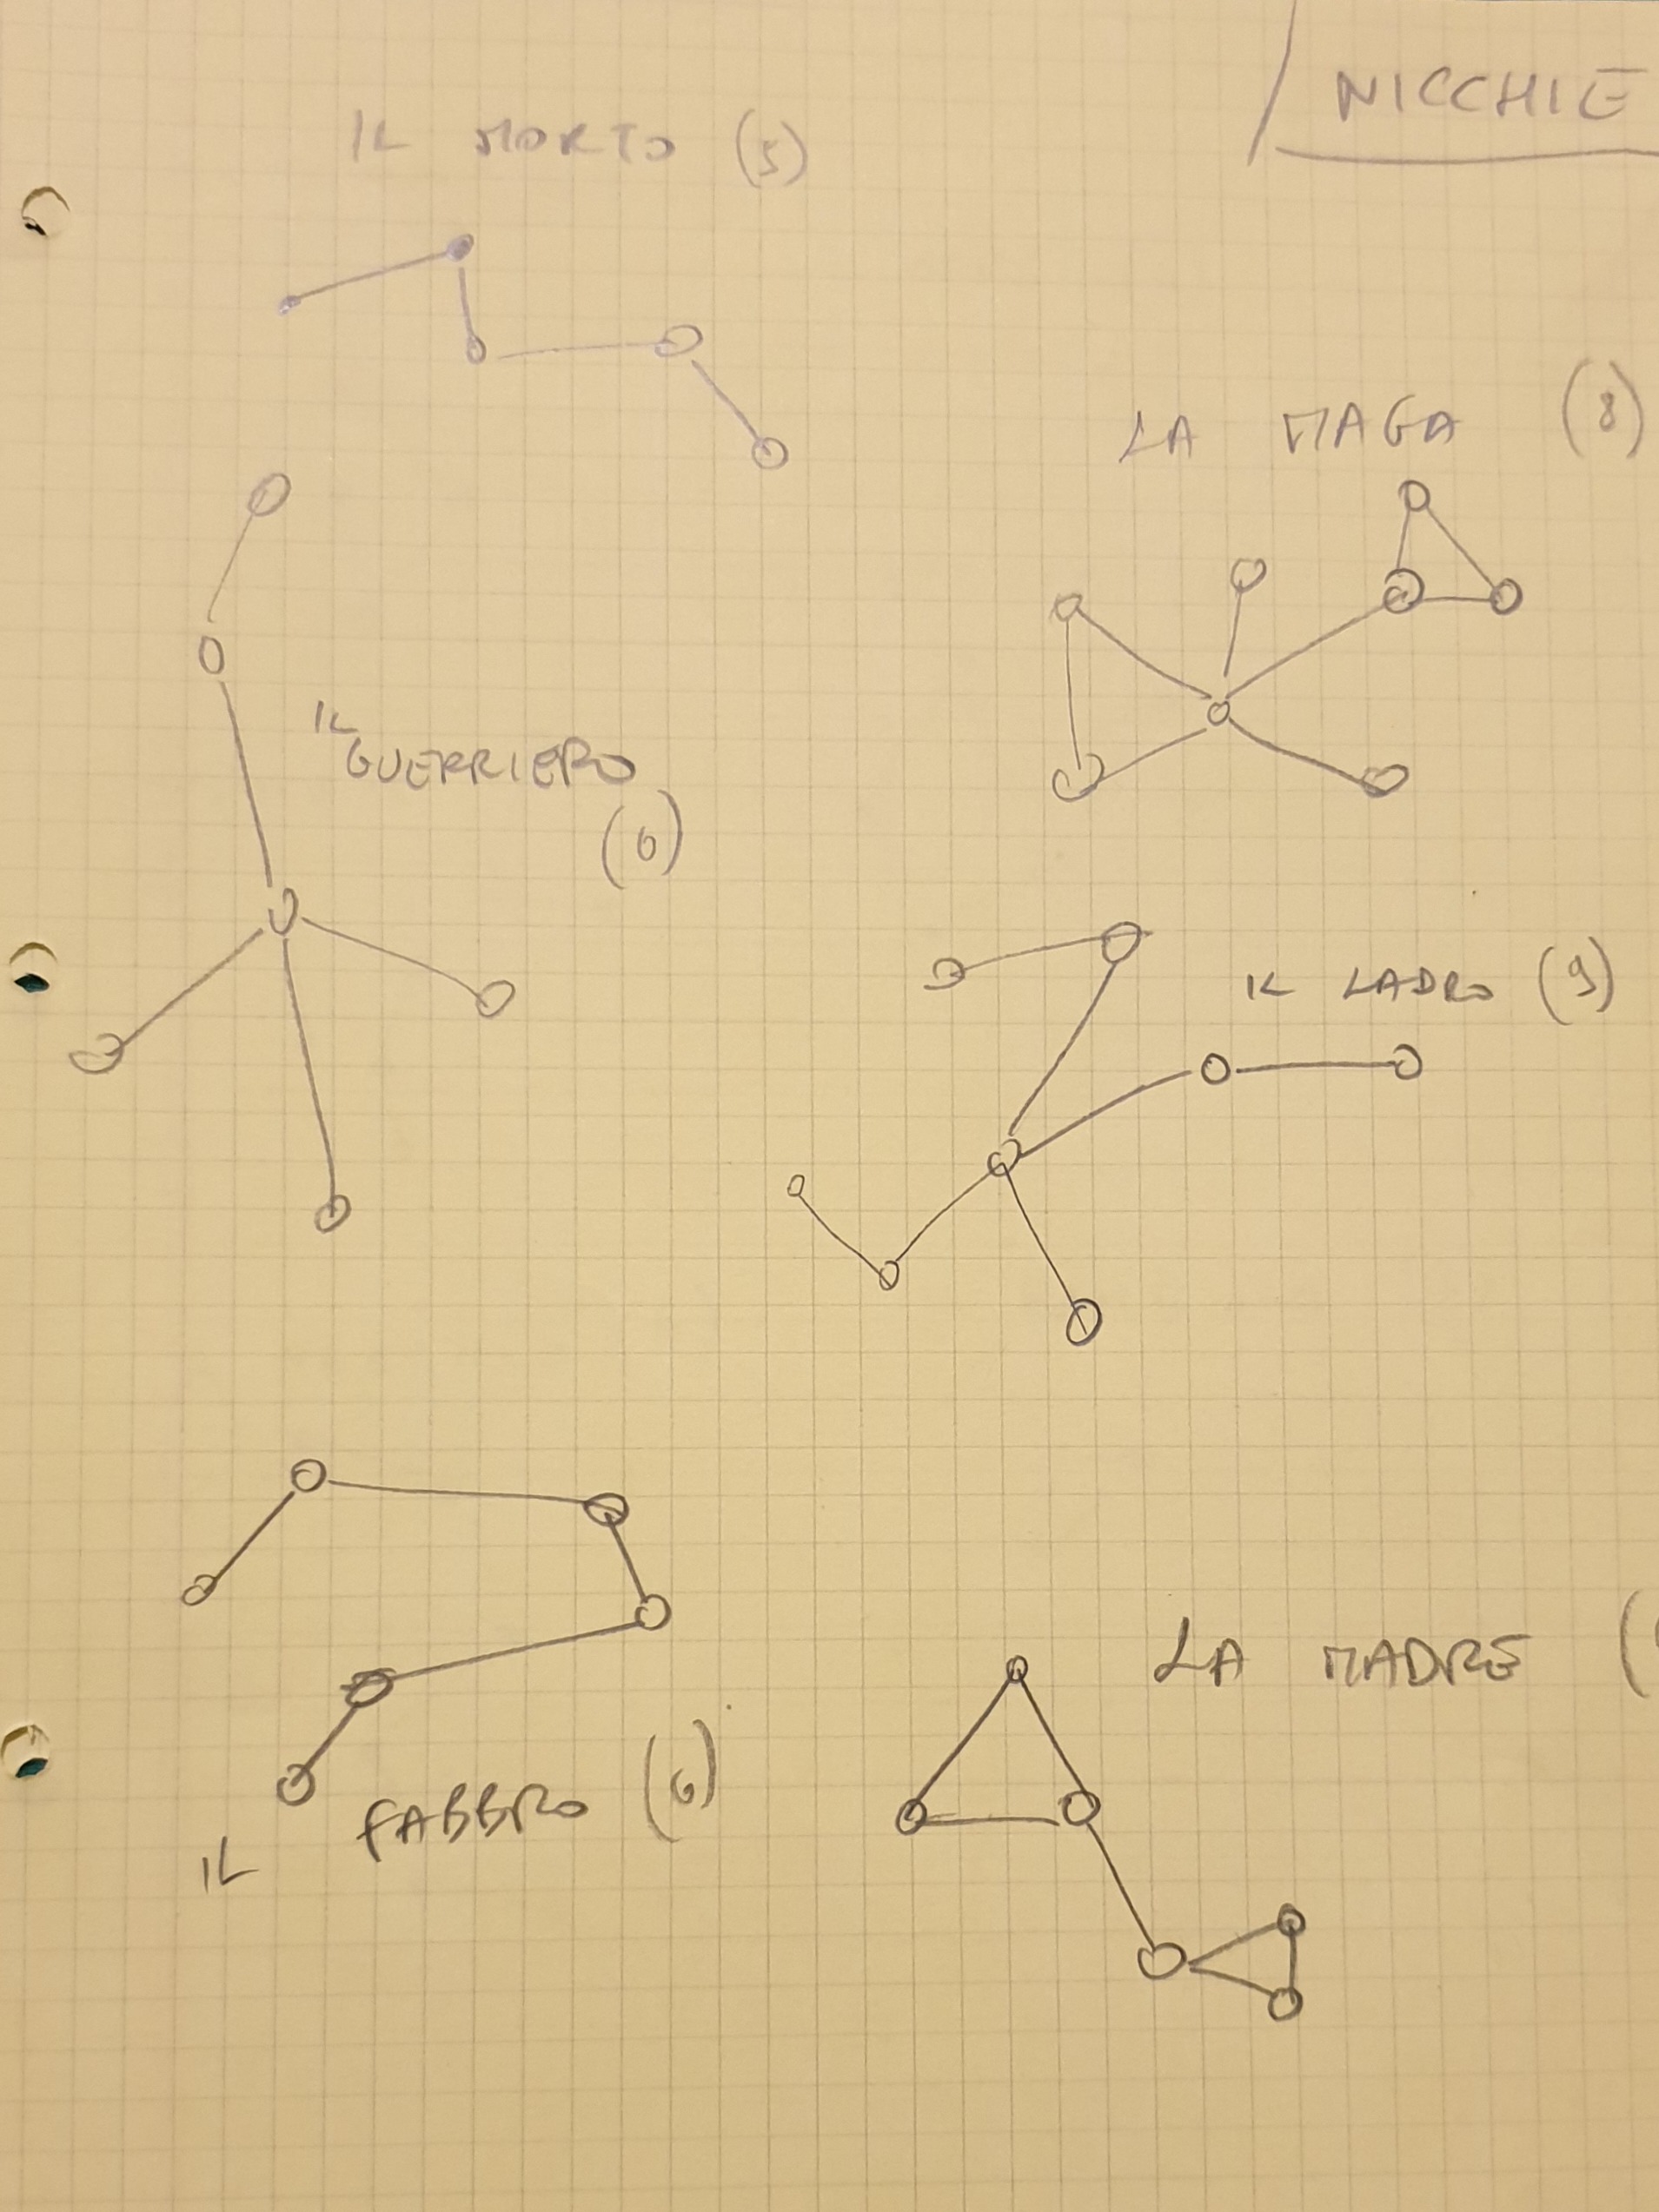 NICCHIE
IL MORTO (5)
LA MAGA (8)
IL
GUERRIERO
(6)
IL LADRO (9)
LA MADRE (
FABBRO (6)
IL